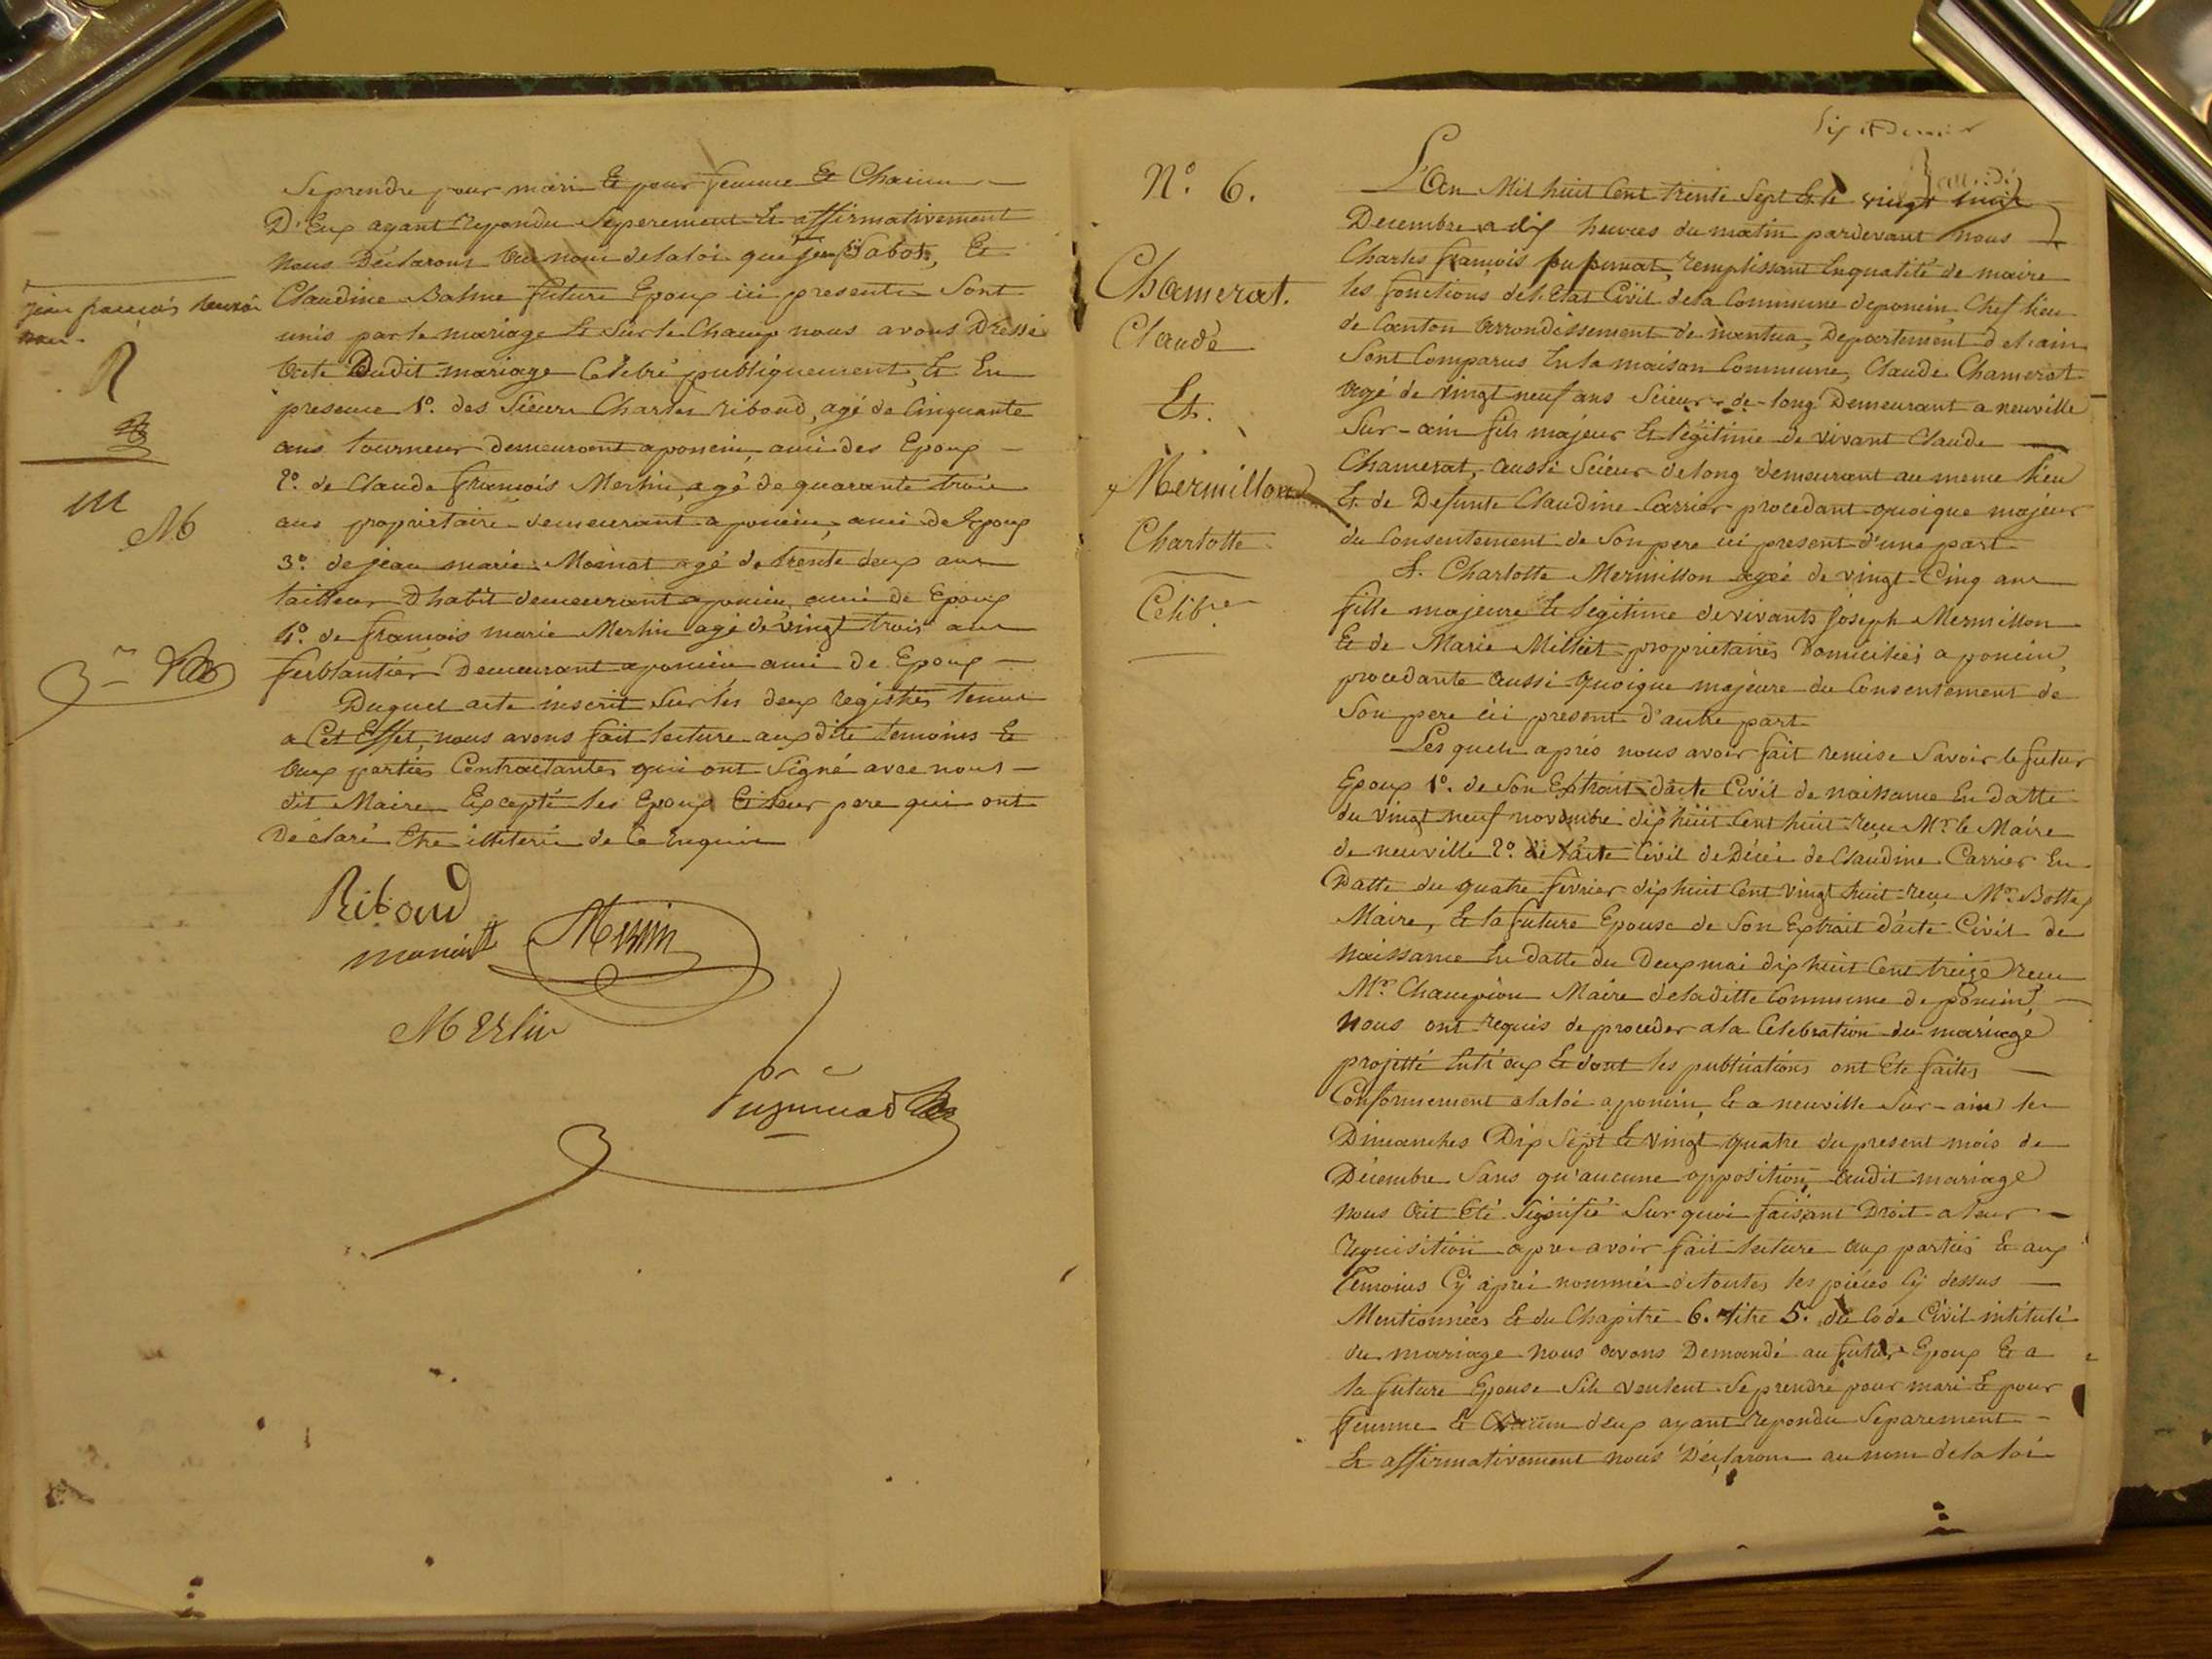 Se prendre pour mari Et pour femme Et Chacun
D'Eux ayant repondu Séperement Et affirmativement
Nous Déclarons au nom de la loi que jean Sabot, Et
Claudine Balme future Epoux ici presents Sont
unis par le mariage Et Sur le Champ nous avons Dressé
acte Dudit mariage Célébré publiquement, Et En
presence 1º. des Sieurs Charles riboud, agé de Cinquante
ans tourneur demeurant a poncin, ami des Epoux
2º. de Claude françois Merlin, agé de quarante trois
ans proprietaire demeurant a poncin, ami de Epoux
3º. de jean marie Moinat agé de trente deux ans
tailleur d'habit demeurant a poncin ami de Epoux
4º. de françois marie Merlin agé de vingt trois ans
ferblantier Demeurant a poncin ami de Epoux
Duquel acte inscrit Sur les deux registres tenus
a Cet Effet, nous avons fait lecture aux dits temoins Et
aux parties Contractantes qui ont Signé avec nous
dit Maire Excepté les Epoux Et leur pere qui ont
Déclaré Etre illiteré de Ce Enquis
jean françois
R
M
Riboud
Merlin
Merlin
Nº. 6.
Chamerat.
Claude
Et.
Mermillon
Charlotte
Celibre
L'an Mil huit Cent trente Sept Et le vingt huit
Decembre a dix heures du matin pardevant nous
Charles françois pupunat, remplissant En qualité de maire
les fonctions de l'Etat Civil de la Commune de poncin Chef lieu
de Canton arrondissement de nantua, Departement de l'ain
Sont Comparus En la maison Commune, Claude Chamerat
agé de vingt neuf ans Scieur-de-long Demeurant a neuville
Sur-ain fils majeur Et légitime de vivant Claude
Chamerat, aussi Scieur de long demeurant au meme lieu
Et de Defunte Claudine Carrier procedant quoique majeur
du Consentement de Son pere ici present d'une part
Et. Charlotte Mermillon agée de vingt Cinq ans
fille majeure Et legitime de vivants joseph Mermillon
Et de Marie Milliet proprietaires Domiciliés a poncin,
procedante aussi quoique majeure du Consentement de
Son pere ici present d'autre part
Les quels aprés nous avoir fait remise Savoir le futur
Epoux 1º. de Son Extrait d'acte Civil de naissance En datte
du vingt neuf novembre dix huit Cent huit reçu Mr. le Maire
de neuville 2º. de l'acte Civil de Décés de Claudine Carrier En
Datte du quatre fevrier dix huit Cent vingt huit reçu Mr. Bottex
Maire, Et la future Epouse de Son Extrait d'acte Civil de
naissance En datte du Deux mai dix huit Cent treize reçu
Mr. Champion Maire de la ditte Commune de poncin,
Nous ont requis de proceder a la Celebration du mariage
projetté Entr'eux Et dont les publications ont Eté faites
Conformement a la loi a poncin, Et a neuville Sur-ain les
Dimanches Dix Sept Et vingt quatre du present mois de
Décembre Sans qu'aucune opposition audit mariage
Nous ait Eté Signifié Sur quoi faisant Droit a leur
requisition apres avoir fait lecture aux parties Et aux
temoins Cy aprés nommés de toutes les pièces Cy dessus
Mentionnées Et du Chapitre 6. titre 5. du Code Civil intitulé
du mariage Nous avons Demandé au futur Epoux Et a
la future Epouse Sils veulent Se prendre pour mari Et pour
femme Et Chacun deux ayant repondu Separement
Et affirmativement nous Déclarons au nom de la loi